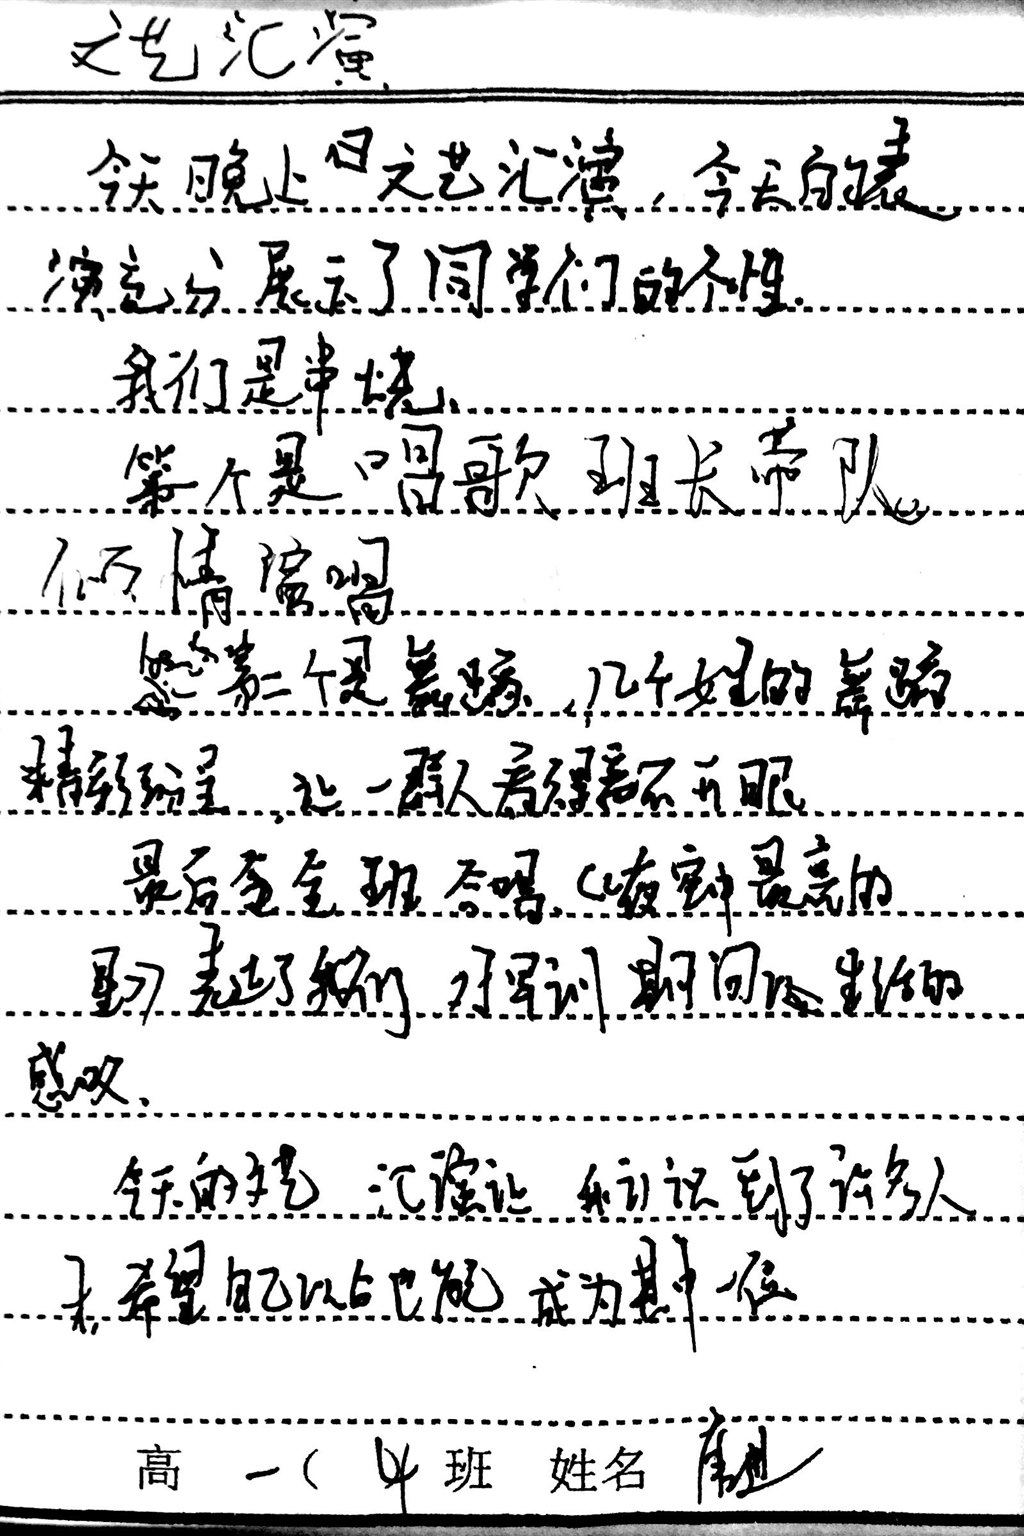 文艺汇演
今天晚上日文艺汇演,今天的表
演充分展示了同学们的个性.
我们是串烧、
第个是唱歌 班长带队。
倾情演唱
第二个是舞蹈,几个女生的舞蹈
精彩纷呈,让一群人看得离不开眼
最后全班合唱《夜空中最亮的
星》表达了我们对军训期间 生活的
感叹.
今天的文艺 汇演让 我认识到了许多人
才,希望自己以后也能成为其中一位
高 一( 4 班 姓名